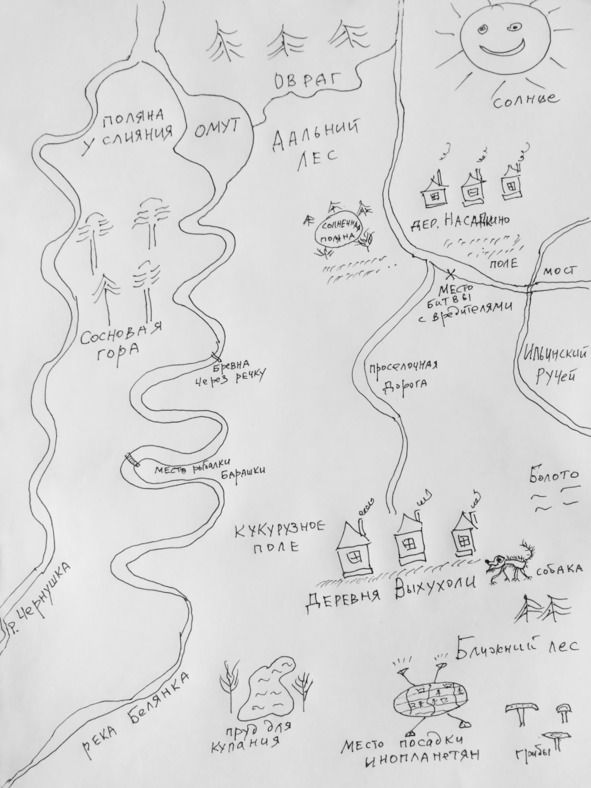 ОВРАГ
СОЛНЫЕ
ПОЛЯНА
У СЛИЯНИЯ
ОМУТ
ДАЛЬНИЙ
ЛЕС
СОЛНЕЧНАЯ
ПОЛЯНА
ДЕР. НАСАДКИНО
ПОЛЕ
МОСТ
МЕСТО
БИТВЫ
С ВРЕДИТЕЛЯМИ
СОСНОВАЯ
ГОРА
БРЕВНА
ЧЕРЕЗ РЕЧКУ
ПРОСЕЛОЧНАЯ
ДОРОГА
ИЛЬИНСКИЙ
РУЧЕЙ
МЕСТО РЫБАЛКИ
БАРАШКИ
БОЛОТО
КУКУРУЗНОЕ
ПОЛЕ
ДЕРЕВНЯ ВЫХУХОЛИ
СОБАКА
Р. ЧЕРНУШКА
БЛИЖНИЙ ЛЕС
РЕКА БЕЛЯНКА
ПРУД ДЛЯ
КУПАНИЯ
МЕСТО ПОСАДКИ
ИНОПЛАНЕТЯН
ГРИБЫ